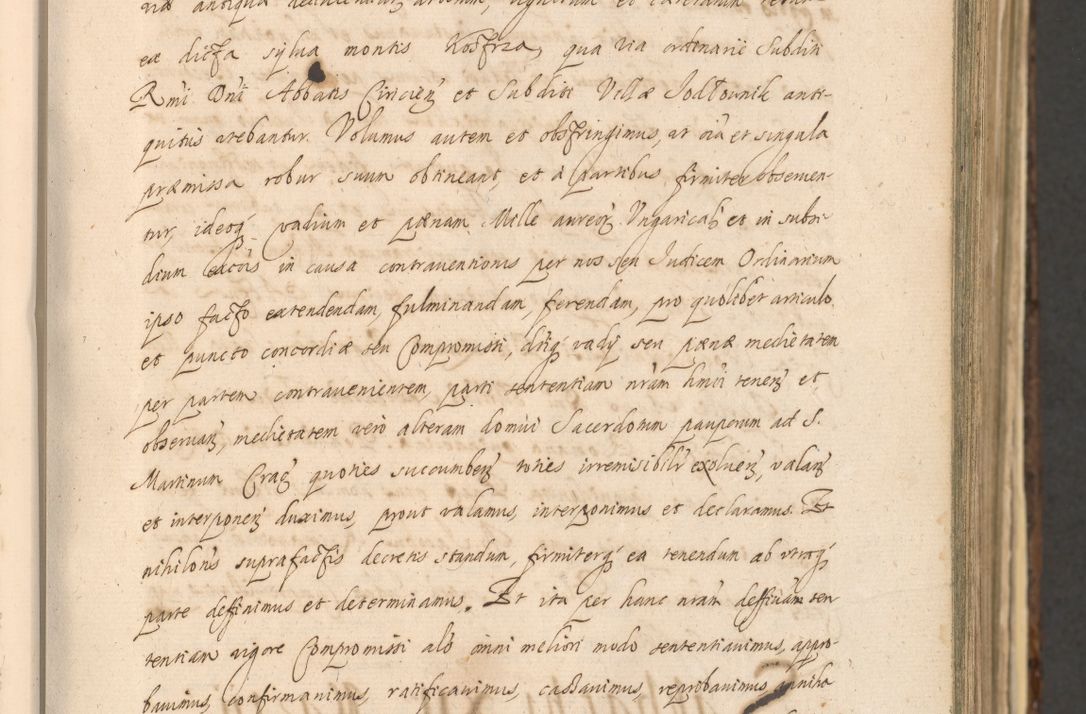 viæ antiquæ
ex dicta sylua montis Kostrza, qua via ordinarie Subditi
Rmi Dni Abbatis Ciricien et Subditi Villæ Jodłownik anti-
quitus utebantur. Volumus autem et obstringimus, ut oia et singula
præmissa robur suum obtineant, et à partibus firmiter obseruen-
tur, ideoq vadium et pænam Mille aureor Vngarical et in subsi-
dium excois in causa contrauentionis per nos seu Judicem Ordinarium
ipso facto extendendam, fulminandam, ferendam, pro quolibet articulo
et puncto concordiæ seu Compromissi, dictiq vadij seu pænæ medietatem
per partem contrauenientem, parti sententiam nram hmoi tenen et
obseruan, medietatem verò alteram domui Sacerdotum pauperum ad S.
Martinum Crac quoties succumben toties irremisibilr exoluen, valan
et interponen duximus, prout valamus, interponimus et declaramus. Et
nihilonis suprafactis decretis standum, firmiterq ea tenendum ab vtraq
parte deffinimus et determinamus. Et ita per hanc nram deffiuam sen
tentiam vigore Compromissi als omni meliori modo sententiauimus, appro-
bauimus, confirmauimus, ratificauimus, cassauimus, reprobauimus,